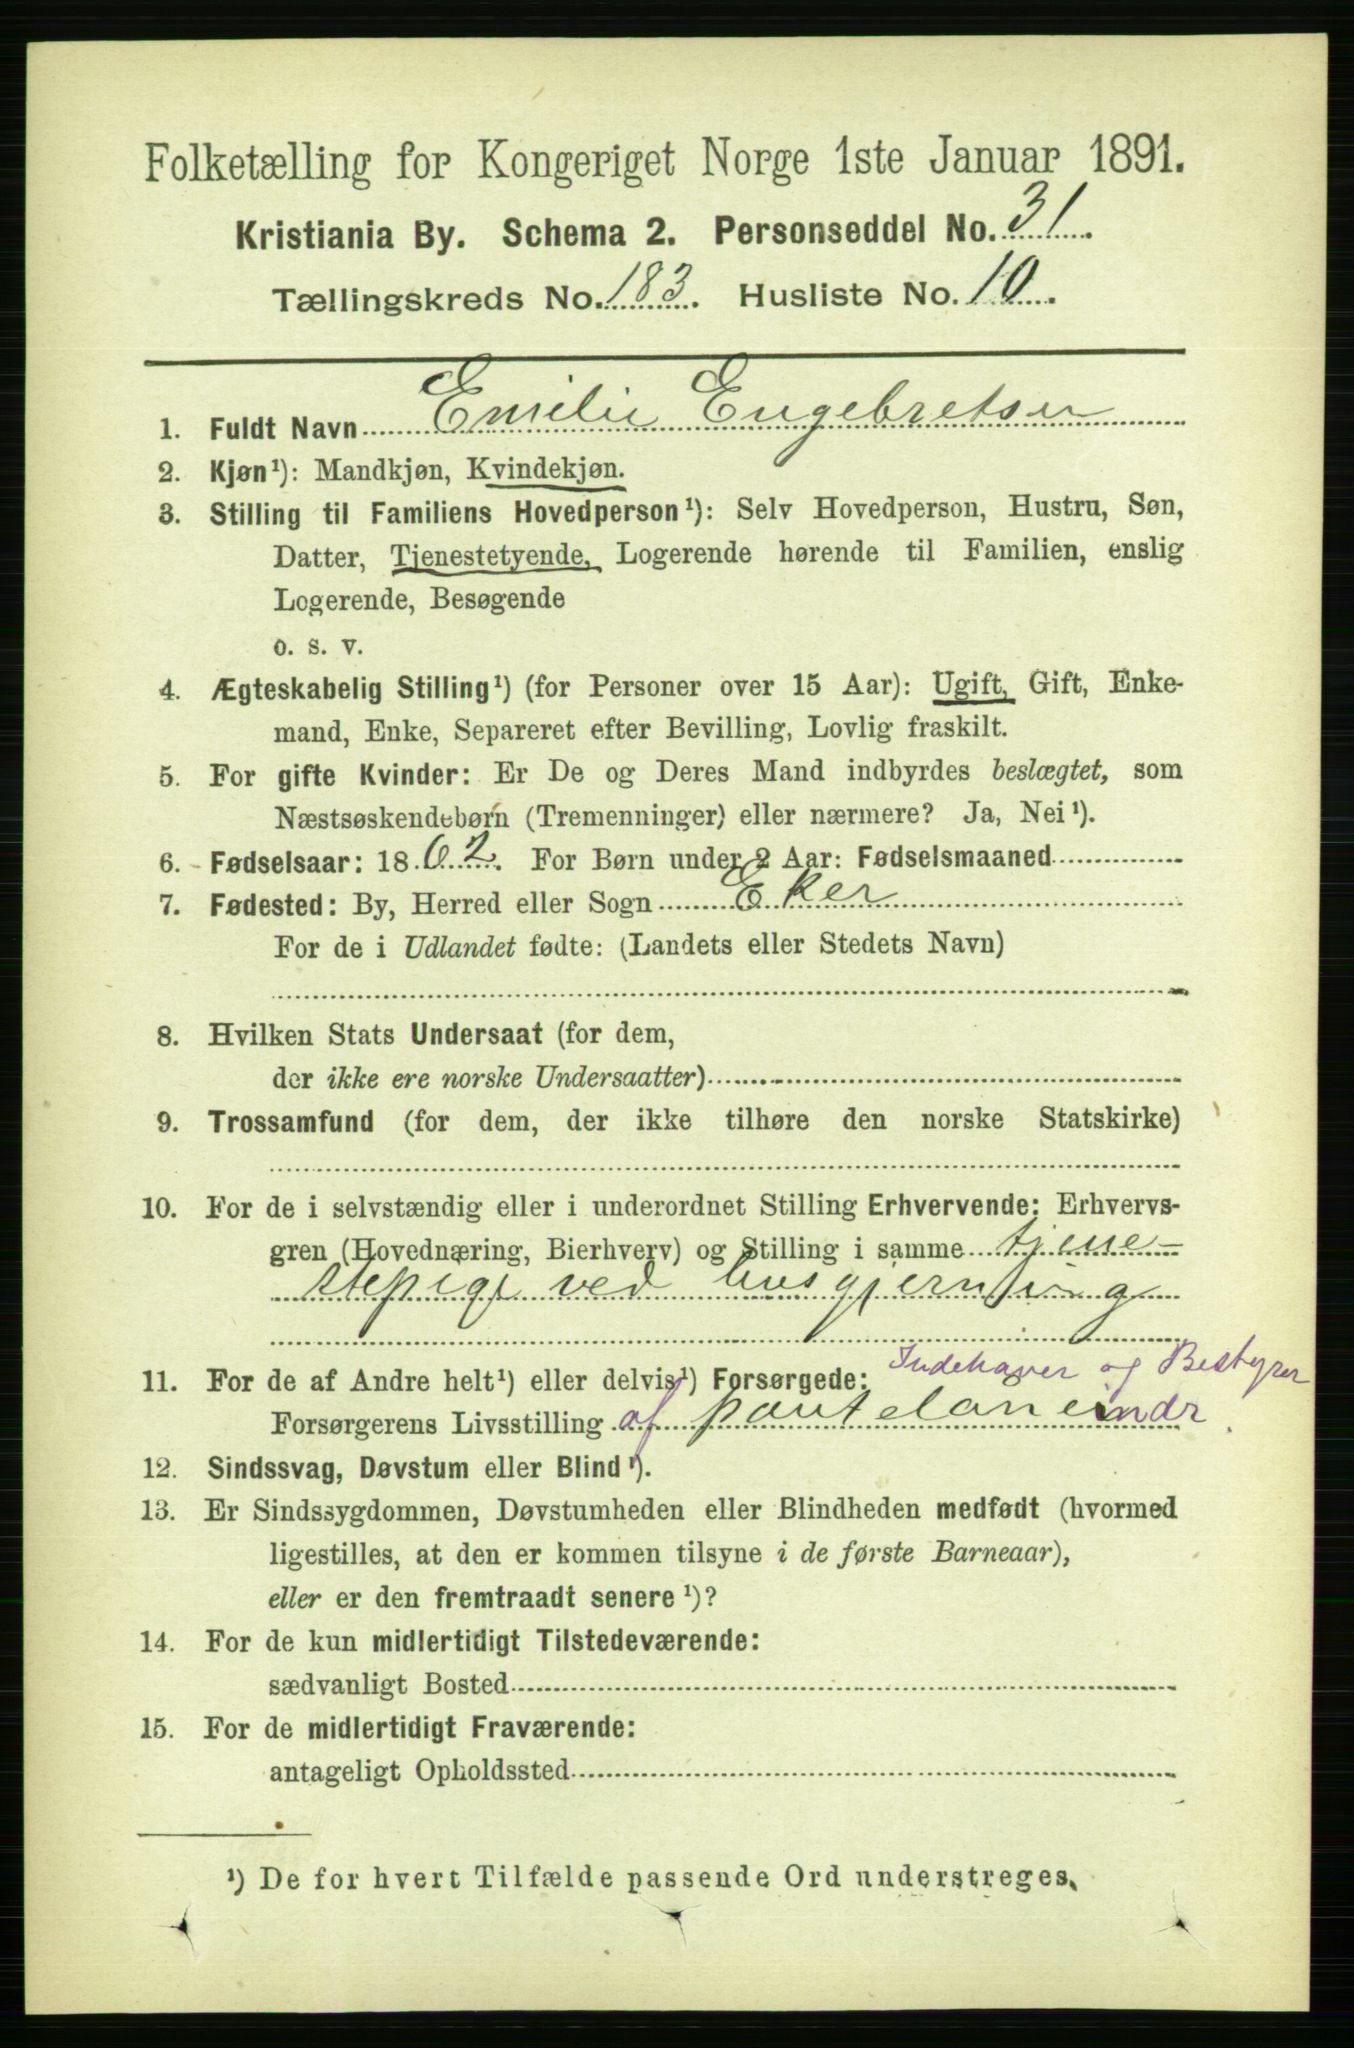 Folketælling for Kongeriget Norge 1ste Januar 1891.
Kristiania By. Schema 2. Personseddel No. 31.
Tællingskreds No. 183. Husliste No. 10.
1. Fuldt Navn Emilie Engebretsen
2. Kjøn¹): Mandkjøn, Kvindekjøn.
3. Stilling til Familiens Hovedperson¹): Selv Hovedperson, Hustru, Søn,
Datter, Tjenestetyende, Logerende hørende til Familien, enslig
Logerende, Besøgende
o. s. v.
4. Ægteskabelig Stilling¹) (for Personer over 15 Aar): Ugift, Gift, Enke-
mand, Enke, Separeret efter Bevilling, Lovlig fraskilt.
5. For gifte Kvinder: Er De og Deres Mand indbyrdes beslægtet, som
Næstsøskendebørn (Tremenninger) eller nærmere? Ja, Nei¹).
6. Fødselsaar: 1862. For Børn under 2 Aar: Fødselsmaaned
7. Fødested: By, Herred eller Sogn Eker
For de i Udlandet fødte: (Landets eller Stedets Navn)
8. Hvilken Stats Undersaat (for dem,
der ikke ere norske Undersaatter)
9. Trossamfund (for dem, der ikke tilhøre den norske Statskirke)
10. For de i selvstændig eller i underordnet Stilling Erhvervende: Erhvervs-
gren (Hovednæring, Bierhverv) og Stilling i samme tjene-
stepige ved husgjerning
11. For de af Andre helt¹) eller delvis¹) Forsørgede: Indehaver og Bestyrer
Forsørgerens Livsstilling af pantelåneindr.
12. Sindssvag, Døvstum eller Blind¹).
13. Er Sindssygdommen, Døvstumheden eller Blindheden medfødt (hvormed
ligestilles, at den er kommen tilsyne i de første Barneaar),
eller er den fremtraadt senere¹)?
14. For de kun midlertidigt Tilstedeværende:
sædvanligt Bosted
15. For de midlertidigt Fraværende:
antageligt Opholdssted
¹) De for hvert Tilfælde passende Ord understreges.